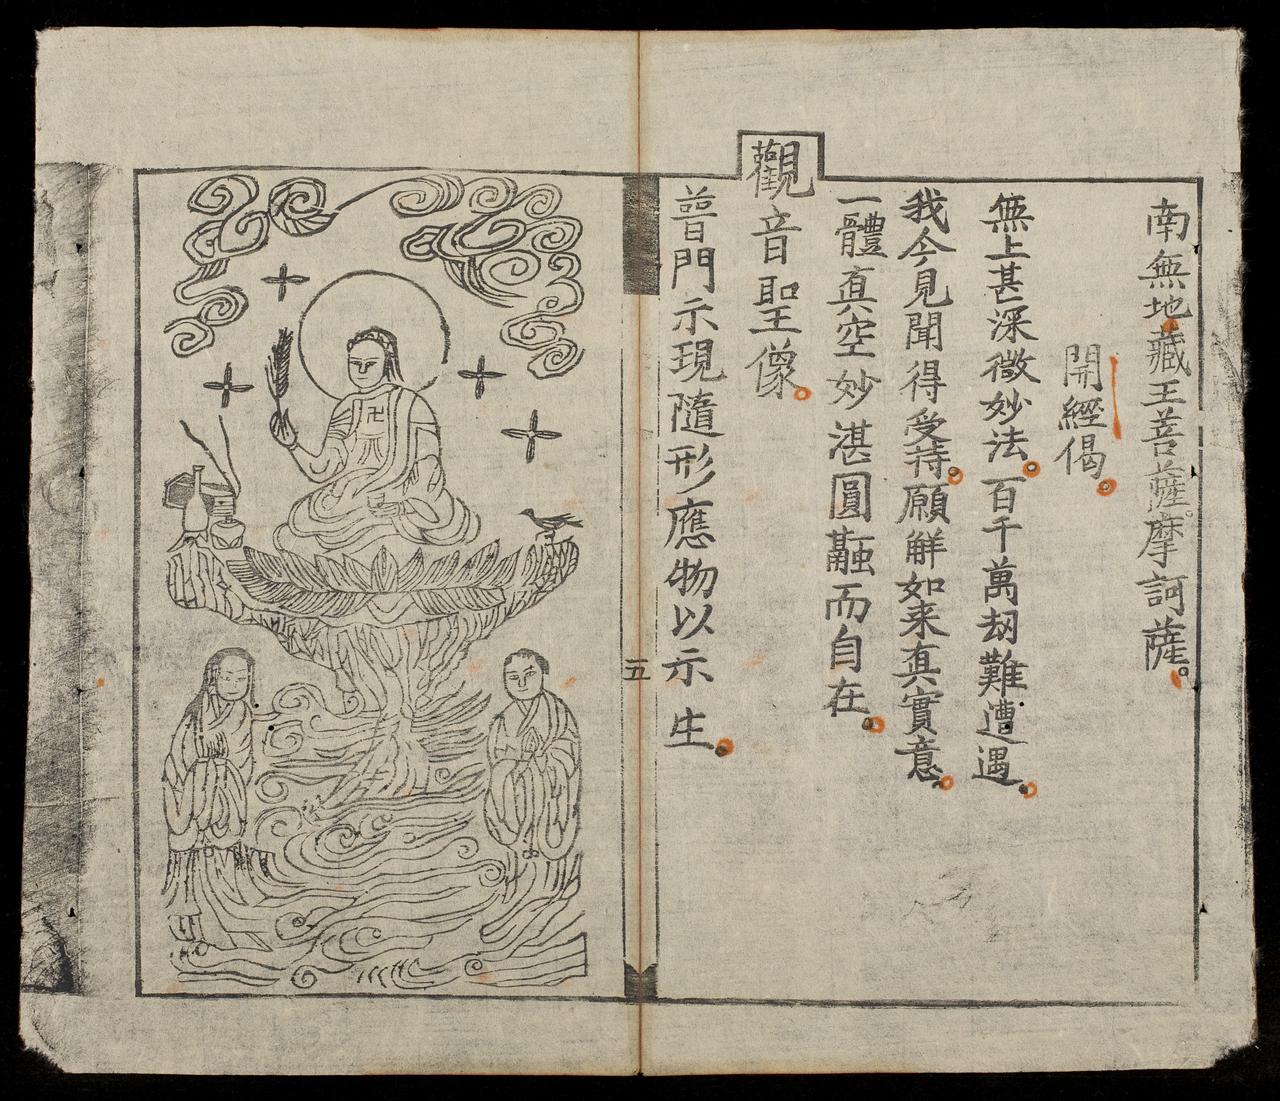 南無地藏王菩薩摩訶薩。
開經偈。
無上甚深微妙法。百千萬劫難遭遇。
我今見聞得受持。願解如来真實意。
一體真空妙湛圓融而自在。
觀音聖像。
普門示現隨形應物以示生。
五
卍